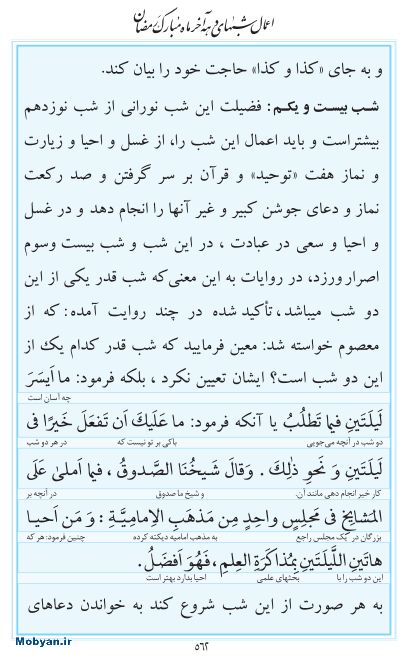 اعمال شبهای دهه آخر ماه مبارک رمضان
و به جای «کذا و کذا» حاجت خود را بیان کند.
شب بیست و یکم: فضیلت این شب نورانی از شب نوزدهم
بیشتراست و باید اعمال این شب را، از غسل و احیا و زیارت
و نماز هفت «توحید» و قرآن بر سر گرفتن و صد رکعت
نماز و دعای جوشن کبیر و غیر آنها را انجام دهد و در غسل
و احیا و سعی در عبادت ، در این شب و شب بیست وسوم
اصرار ورزد، در روایات به این معنی‌که شب قدر یکی از این
دو شب میباشد، تأکید شده در چند روایت آمده: که از
معصوم خواسته شد: معین فرمایید که شب قدر کدام یک از
این دو شب است؟ ایشان تعیین نکرد ، بلکه فرمود: ما اَیسَرَ
چه آسان است
لَیلَتَینِ فیما تَطلُبُ یا آنکه فرمود: ما عَلَیكَ اَن تَفعَلَ خَیرًا فی
دو شب در آنچه می‌جویی باکی بر تو نیست که در هر دو شب
لَیلَتَینِ وَ نَحوِ ذٰلِكَ . وَقالَ شَیخُنَا الصَّدوقُ ، فیما اَملیٰ عَلَی
کار خیر انجام دهی مانند آن. و شیخ ما صدوق در آنچه بر
المَشایِخِ فی مَجلِسٍ واحِدٍ مِن مَذهَبِ الاِمامِیَّةِ : وَ مَن اَحیا
بزرگان در یک مجلس راجع به مذهب امامیه دیکته کرده چنین فرمود: هر که
هاتَینِ اللَّیلَتَینِ بِمُذاکَرَةِ العِلمِ ، فَهُوَ اَفضَلُ .
این دو شب را با بحثهای علمی احیا بدارد بهتر است
به هر صورت از این شب شروع کند به خواندن دعاهای
۵۶۲
Mobyan.ir